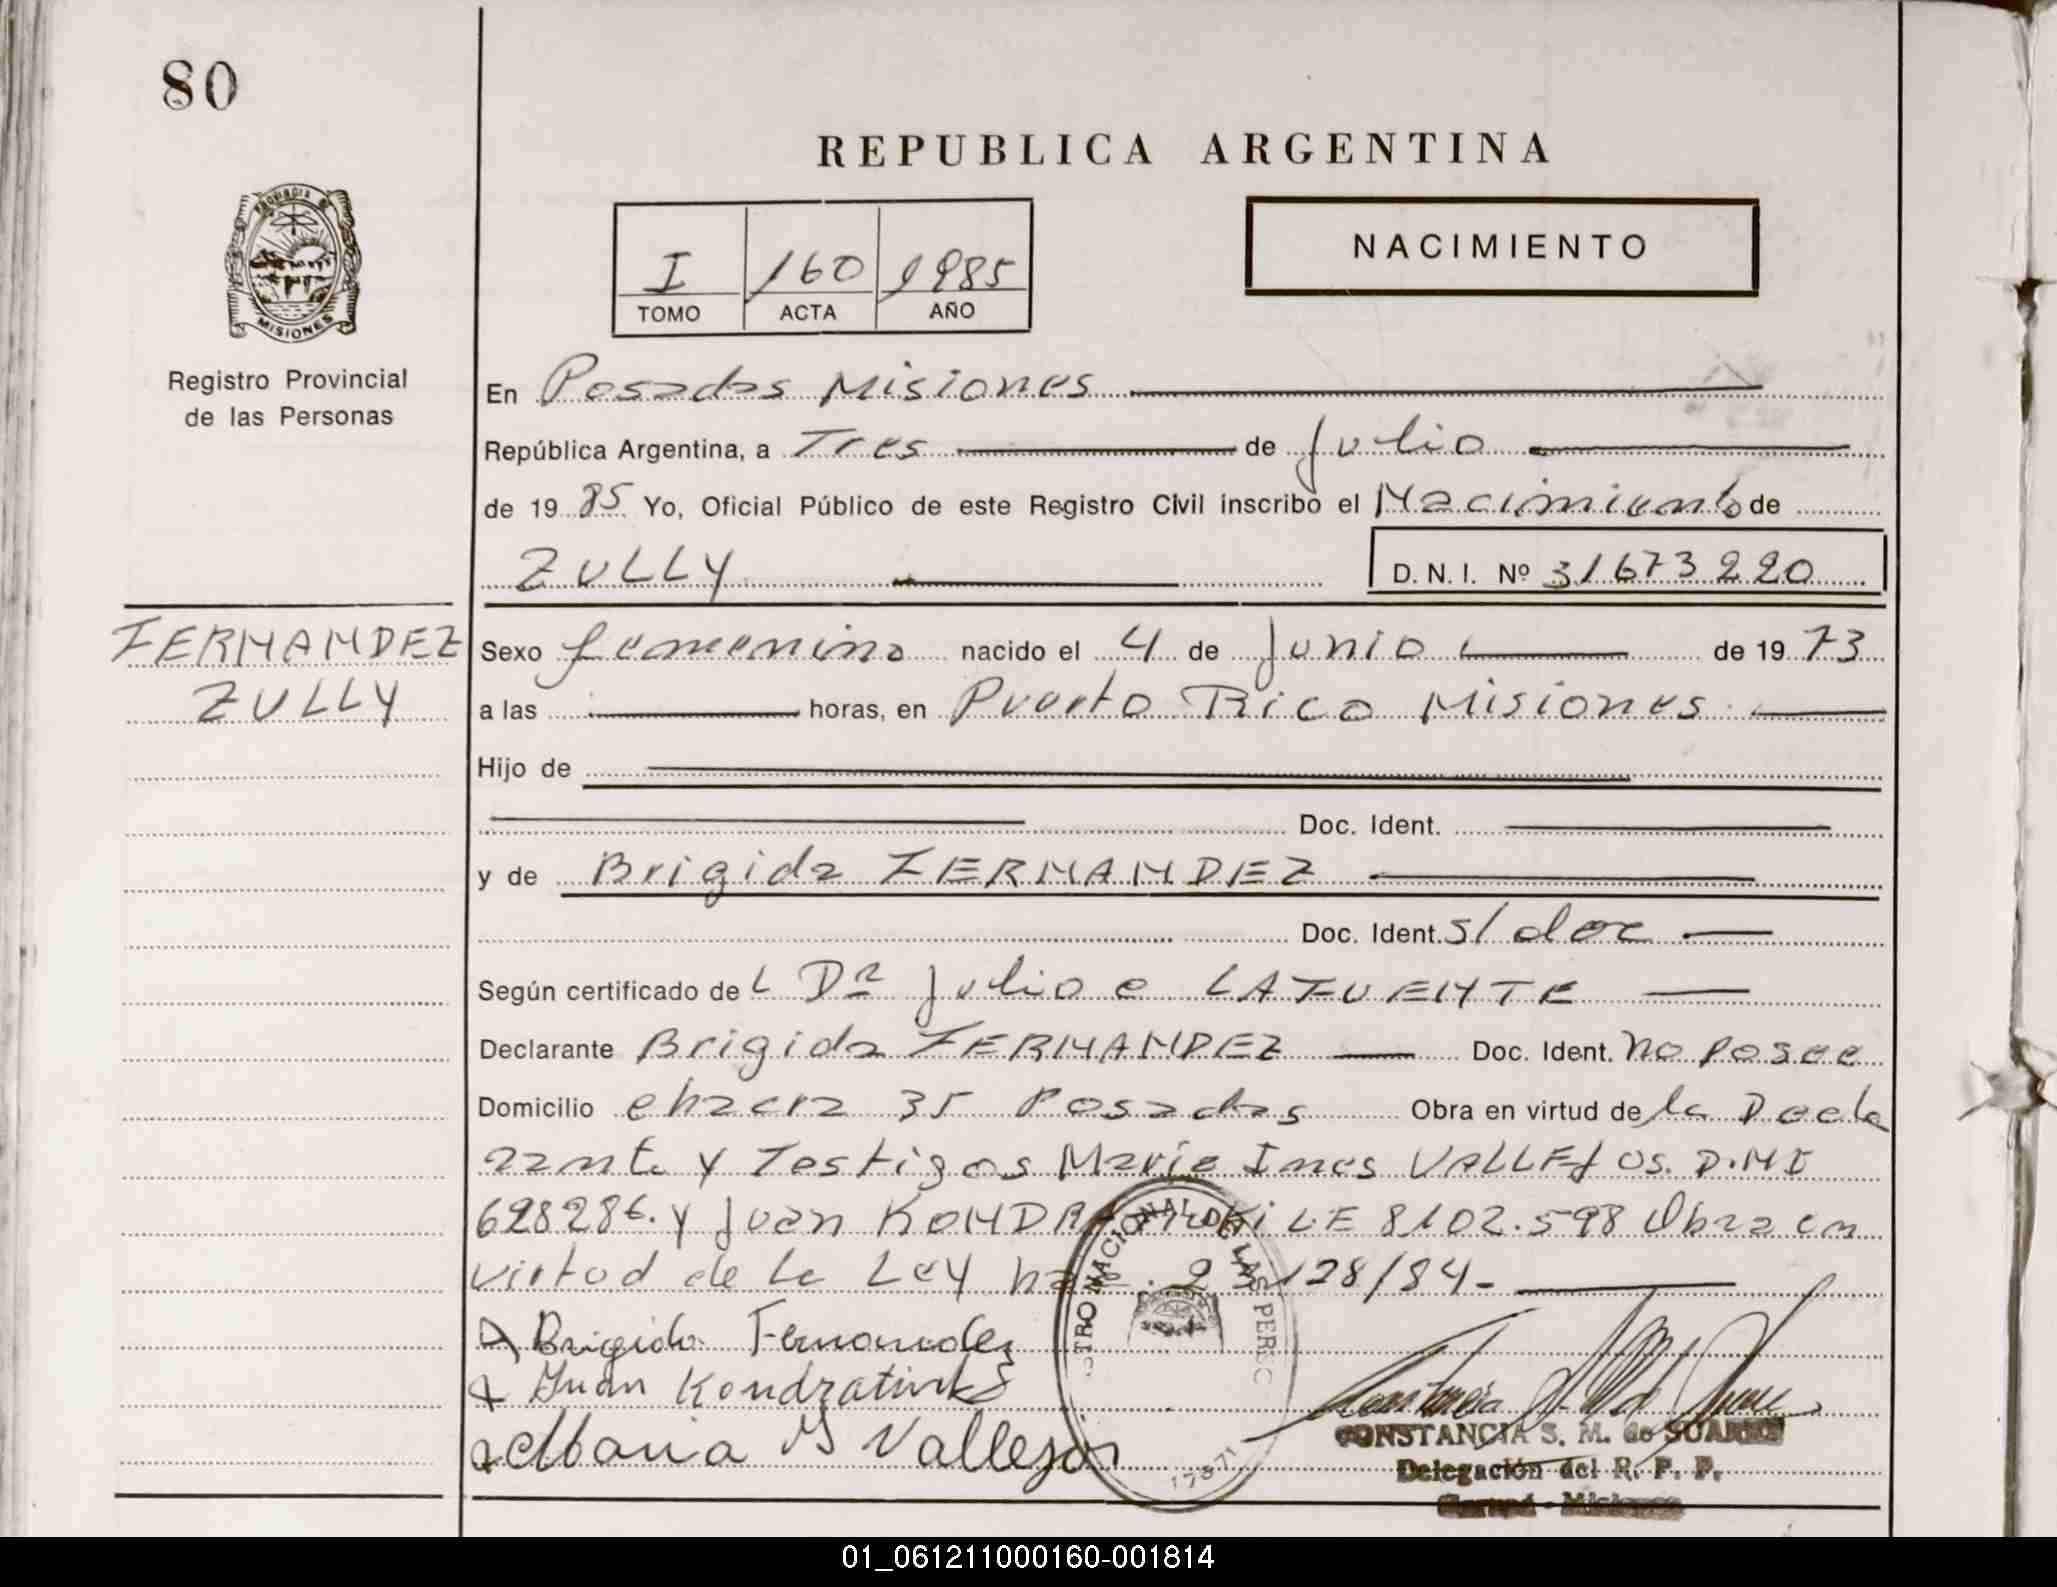 80
REPUBLICA ARGENTINA
PROVINCIA DE
MISIONES
I 160 1985
TOMO ACTA AÑO
NACIMIENTO
Registro Provincial
de las Personas
En Posadas Misiones
República Argentina, a Tres de Julio
de 19 85 Yo, Oficial Público de este Registro Civil inscribo el Nacimiento de
ZULLY D. N. I. Nº 31673220
FERNANDEZ
ZULLY
Sexo femenino nacido el 4 de Junio de 19 73
a las horas, en Puerto Rico Misiones
Hijo de
Doc. Ident.
y de Brigida FERNANDEZ
Doc. Ident. s/ doc
Según certificado de L Dr Julio e LAFUENTE
Declarante Brigida FERNANDEZ Doc. Ident. no posee
Domicilio chacra 35 Posadas Obra en virtud de la Decla
rante y Testigos Maria Ines VALLEJOS. D.N I
628286. y Juan LE 8102.598 Obra en
virtud de la Ley 23128/84-
Brigida Fernandez
Juan Kondratiuk
Maria I Vallejo
CONSTANCIA S. M. de SUAREZ
Delegación del R. P. P.
Garupá - Misiones
01_061211000160-001814